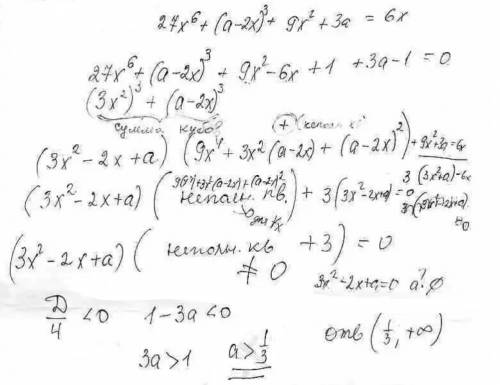 27x⁶ + (a-2x)³ + 9x² + 3a = 6x
27x⁶ + (a-2x)³ + 9x² - 6x + 1 + 3a - 1 = 0
(3x²)³ + (a-2x)³
сумма кубов
(3x² - 2x + a) (9x⁴ + 3x²(a-2x) + (a-2x)²) + 9x² + 3a = 6x
3 (3x²+a) - 6x
(3x² - 2x + a) ( неполн. кв. ) + 3(3x² - 2x + a) = 0
(3x² - 2x + a) ( неполн. кв + 3) = 0
≠ 0
3x² - 2x + a = 0 a? ∅
D/4 < 0 1 - 3a < 0
3a > 1 a > 1/3
отв (1/3, +∞)